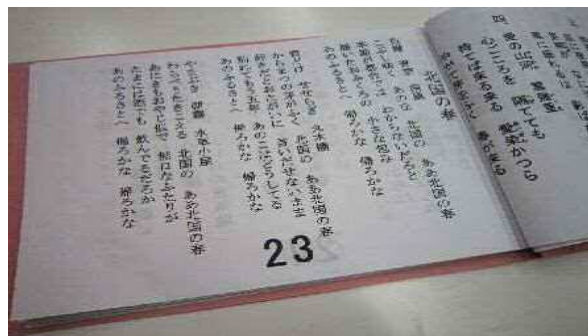 四、愛の山河 雲幾重
心ごころを 隔てても
待てば来る来る 愛染かつら
やがて芽をふく 春が来る
北国の春
白樺 青空 南風
こぶし咲く あの丘 北国の ああ北国の春
季節が都会では わからないだろと
届いたおふくろの 小さな包み
あのふるさとへ 帰ろかな 帰ろかな
雪どけ せせらぎ 丸木橋
からまつの芽がふく 北国の ああ北国の春
好きだとおたがいに 言いだせないまま
別れてもう五年 あのこはどうしてる
あのふるさとへ 帰ろかな 帰ろかな
やまぶき 朝霧 水車小屋
わらべ唄きこえる 北国の ああ北国の春
あにきもおやじ似で 無口なふたりが
たまには酒でも 飲んでるだろか
あのふるさとへ 帰ろかな 帰ろかな
23